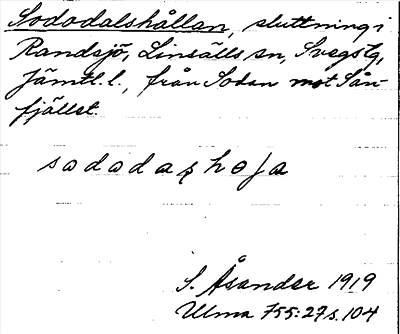 Sododalshållan, sluttning i
Randsjö, Linsälls sn, Svegs tg,
Jämtl. l., från Sodan mot Sån-
fjället.
sododaʂhoɭa
S. Åsander 1919
Ulma 755:27 s. 104